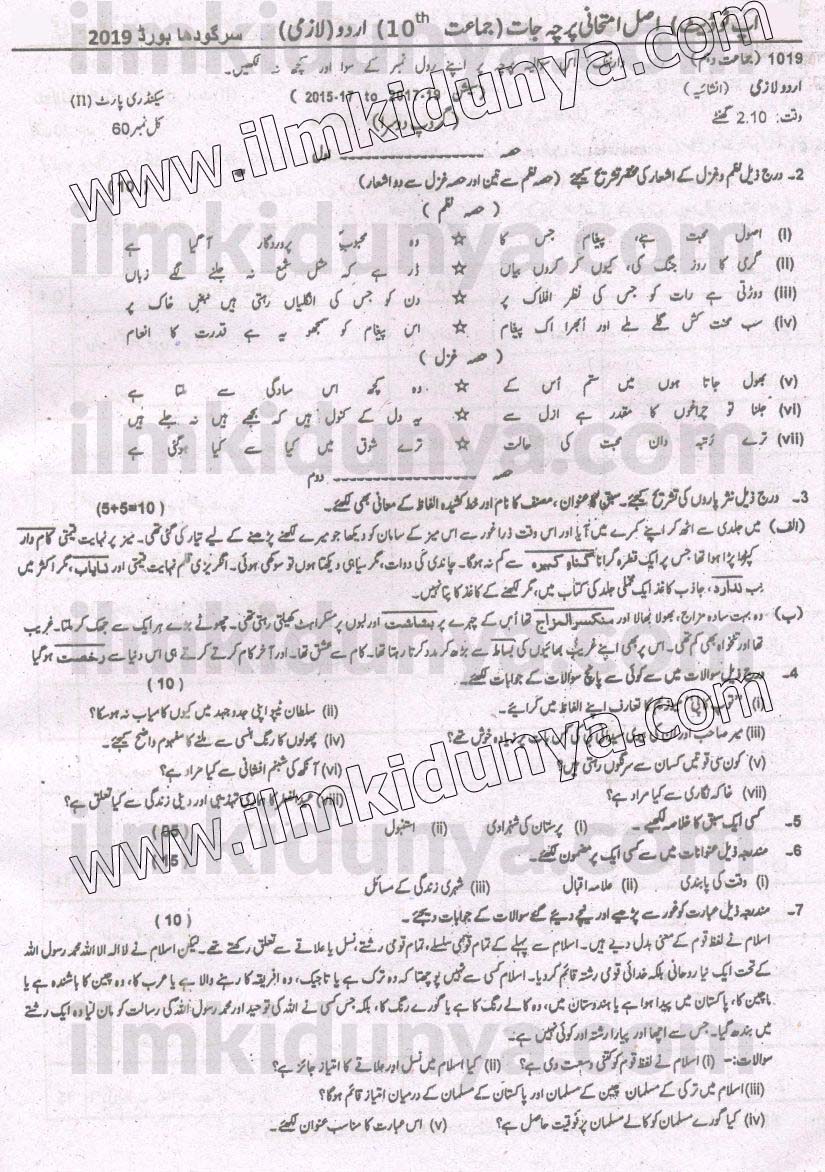 اصل امتحانی پرچہ جات (جماعت 10th) اردو (لازمی) سرگودھا بورڈ 2019
1019 (جماعت دہم) پرچہ پر اپنے رول نمبر کے سوا اور کچھ نہ لکھیں۔
اردو لازمی (انشائیہ) (سیشن 2015-17 to 2017-19) سیکنڈری پارٹ (II)
وقت: 2.10 گھنٹے (گروپ دوسرا) کل نمبر 60
حصہ اول
2۔ درج ذیل نظم و غزل کے اشعار کی مختصر تشریح کیجئے (حصہ نظم سے تین اور حصہ غزل سے دو اشعار) (10)
(حصہ نظم)
(i) اصولِ محبت ہے، پیغام جس کا ☆ وہ محبوبِ پروردگار آ گیا ہے
(ii) گرمی کا روز جنگ کی، کیوں کر کروں بیاں ☆ ڈر ہے کہ مثل شمع نہ جلنے لگے زباں
(iii) دوڑتی ہے رات کو جس کی نظر افلاک پر ☆ دن کو جس کی انگلیاں رہتی ہیں نبض خاک پر
(iv) سب محنت کش گلے ملے اور اُبھرا اک پیغام ☆ اس پیغام کو سمجھو یہ ہے قدرت کا انعام
(حصہ غزل)
(v) بھول جاتا ہوں میں ستم اُس کے ☆ وہ کچھ اس سادگی سے ملتا ہے
(vi) جلنا تو چراغوں کا مقدر ہے ازل سے ☆ یہ دل کے کنول ہیں کہ بجھے ہیں نہ جلے ہیں
(vii) ترے رُتبہ دان محبت کی حالت ☆ ترے شوق میں کیا سے کیا ہو گئی ہے
حصہ دوم
3۔ درج ذیل نثر پاروں کی تشریح کیجئے۔ سبق کا عنوان، مصنف کا نام اور خط کشیدہ الفاظ کے معانی بھی لکھئے۔ (5+5=10)
(الف) میں جلدی سے اٹھ کر اپنے کمرے میں آیا اور اس وقت ذرا غور سے اس میز کے سامان کو دیکھا جو میرے لکھنے پڑھنے کے لیے تیار کی گئی تھی۔ میز پر نہایت قیمتی کام دار
کپڑا پڑا ہوا تھا جس پر ایک قطرہ گرانا گناہ کبیرہ سے کم نہ ہوگا۔ چاندی کی دوات، مگر سیاہی دیکھتا ہوں تو سوکھی ہوئی۔ انگریزی قلم نہایت قیمتی اور نایاب، مگر اکثر میں
نب ندارد، جاذب کاغذ ایک مخملی جلد کی کتاب میں، مگر لکھنے کے کاغذ کا پتا نہیں۔
(ب) وہ بہت سادہ مزاج، بھولا بھالا اور منکسر المزاج تھا اُس کے چہرے پر بشاشت اور لبوں پر مسکراہٹ کھیلتی رہتی تھی۔ چھوٹے بڑے ہر ایک سے جھک کر ملتا۔ غریب
تھا اور تنخواہ بھی کم تھی۔ اس پر بھی اپنے غریب بھائیوں کی بساط سے بڑھ کر مدد کرتا رہتا تھا۔ کام سے عشق تھا۔ اور آخر کام کرتے کرتے ہی اس دنیا سے رخصت ہو گیا
4۔ درج ذیل سوالات میں سے کوئی سے پانچ سوالات کے جوابات لکھئے۔ (10)
(i) میوزیم کا تعارف اپنے الفاظ میں کرائیے۔ (ii) سلطان ٹیپو اپنی جدوجہد میں کیوں کامیاب نہ ہو سکا؟
(iii) میر صاحب اور ان کی زیادہ خوش تھے؟ (iv) پھولوں کا رنگ ہنسی سے ملنے کا مفہوم واضح کیجئے۔
(v) کون سی قوتیں کسان سے سرنگوں رہتی ہیں؟ (vi) آنکھ کی شبنم افشانی سے کیا مراد ہے؟
(vii) خاکہ نگاری سے کیا مراد ہے؟ (viii) عید الفطر کا ہماری تہذیبی اور دینی زندگی سے کیا تعلق ہے؟
5۔ کسی ایک سبق کا خلاصہ لکھیے۔ (i) پرستان کی شہزادی (ii) استنبول (05)
6۔ مندرجہ ذیل عنوانات میں سے کسی ایک پر مضمون لکھئے۔ (15)
(i) وقت کی پابندی (ii) علامہ اقبال (iii) شہری زندگی کے مسائل
7۔ مندرجہ ذیل عبارت کو غور سے پڑھیے اور نیچے دیئے گئے سوالات کے جوابات دیجئے۔ (10)
اسلام نے لفظ قوم کے معنی بدل دیے ہیں۔ اسلام سے پہلے کے تمام قومی سلسلے، تمام قومی رشتے، نسل یا علاقے سے تعلق رکھتے تھے۔ لیکن اسلام نے لا الہ الا اللہ محمد رسول اللہ
کے تحت ایک نیا روحانی بلکہ خدائی قومی رشتہ قائم کر دیا۔ اسلام کسی سے نہیں پوچھتا کہ وہ ترک ہے یا تاجیک، وہ افریقہ کا رہنے والا ہے یا عرب کا، وہ چین کا باشندہ ہے یا
ماچین کا، پاکستان میں پیدا ہوا ہے یا ہندوستان میں، وہ کالے رنگ کا ہے یا گورے رنگ کا، بلکہ جس کسی نے اللہ کی توحید اور محمد رسول اللہ کی رسالت کو مان لیا وہ ایک رشتے
میں بندھ گیا۔ جس سے اچھا اور پیارا رشتہ اور کوئی نہیں ہے۔
سوالات:- (i) اسلام نے لفظ قوم کو کتنی وسعت دی ہے؟ (ii) کیا اسلام میں نسل اور علاقے کا امتیاز جائز ہے؟
(iii) اسلام میں ترکی کے مسلمان چین کے مسلمان اور پاکستان کے مسلمان کے درمیان امتیاز قائم ہوگا؟
(iv) کیا گورے مسلمان کو کالے مسلمان پر فوقیت حاصل ہے؟ (v) اس عبارت کا مناسب عنوان لکھئے۔
www.ilmkidunya.com
ilmkidunya.com
ilmkidunya.com
ilmkidunya.com
www.ilmkidunya.com
ilmkidunya.com
ilmkidunya.com